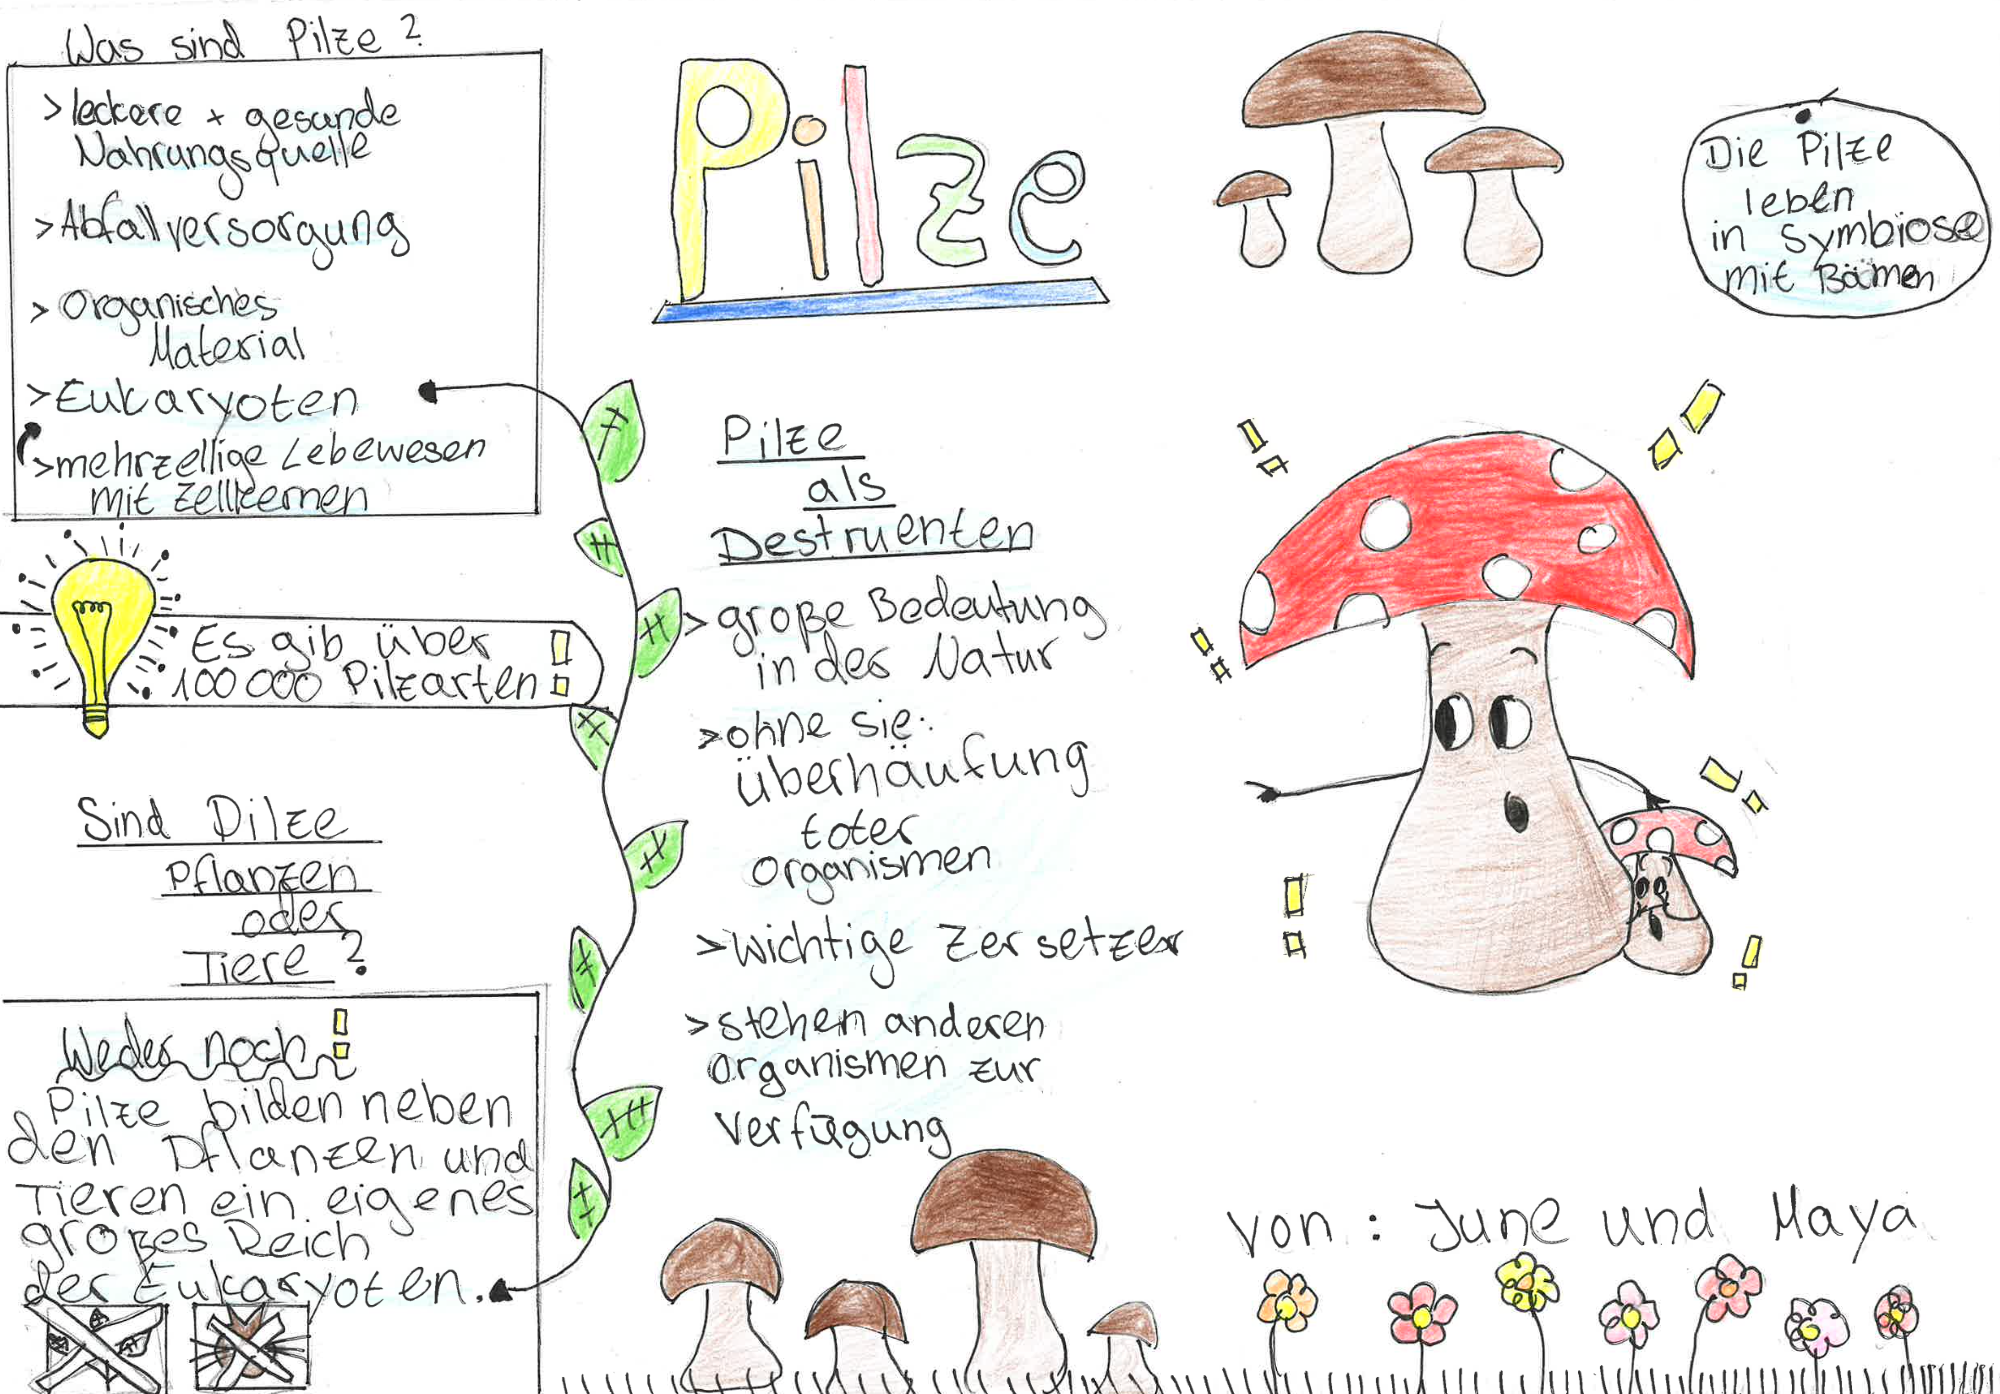 Was sind Pilze?
> leckere + gesunde
Nahrungsquelle
> Abfallversorgung
> Organisches
Material
> Eukaryoten
> mehrzellige Lebewesen
mit Zellkernen
Es gib über
100 000 Pilzarten!
Sind Pilze
Pflanzen
oder
Tiere?
Weder noch!
Pilze bilden neben
den Pflanzen und
Tieren ein eigenes
großes Reich
der Eukaryoten.
Pilze
Pilze
als
Destruenten
> große Bedeutung
in der Natur
> ohne sie:
überhäufung
toter
organismen
> wichtige Zersetzer
> stehen anderen
organismen zur
Verfügung
Die Pilze
leben
in Symbiose
mit Bämen
von: June und Maya